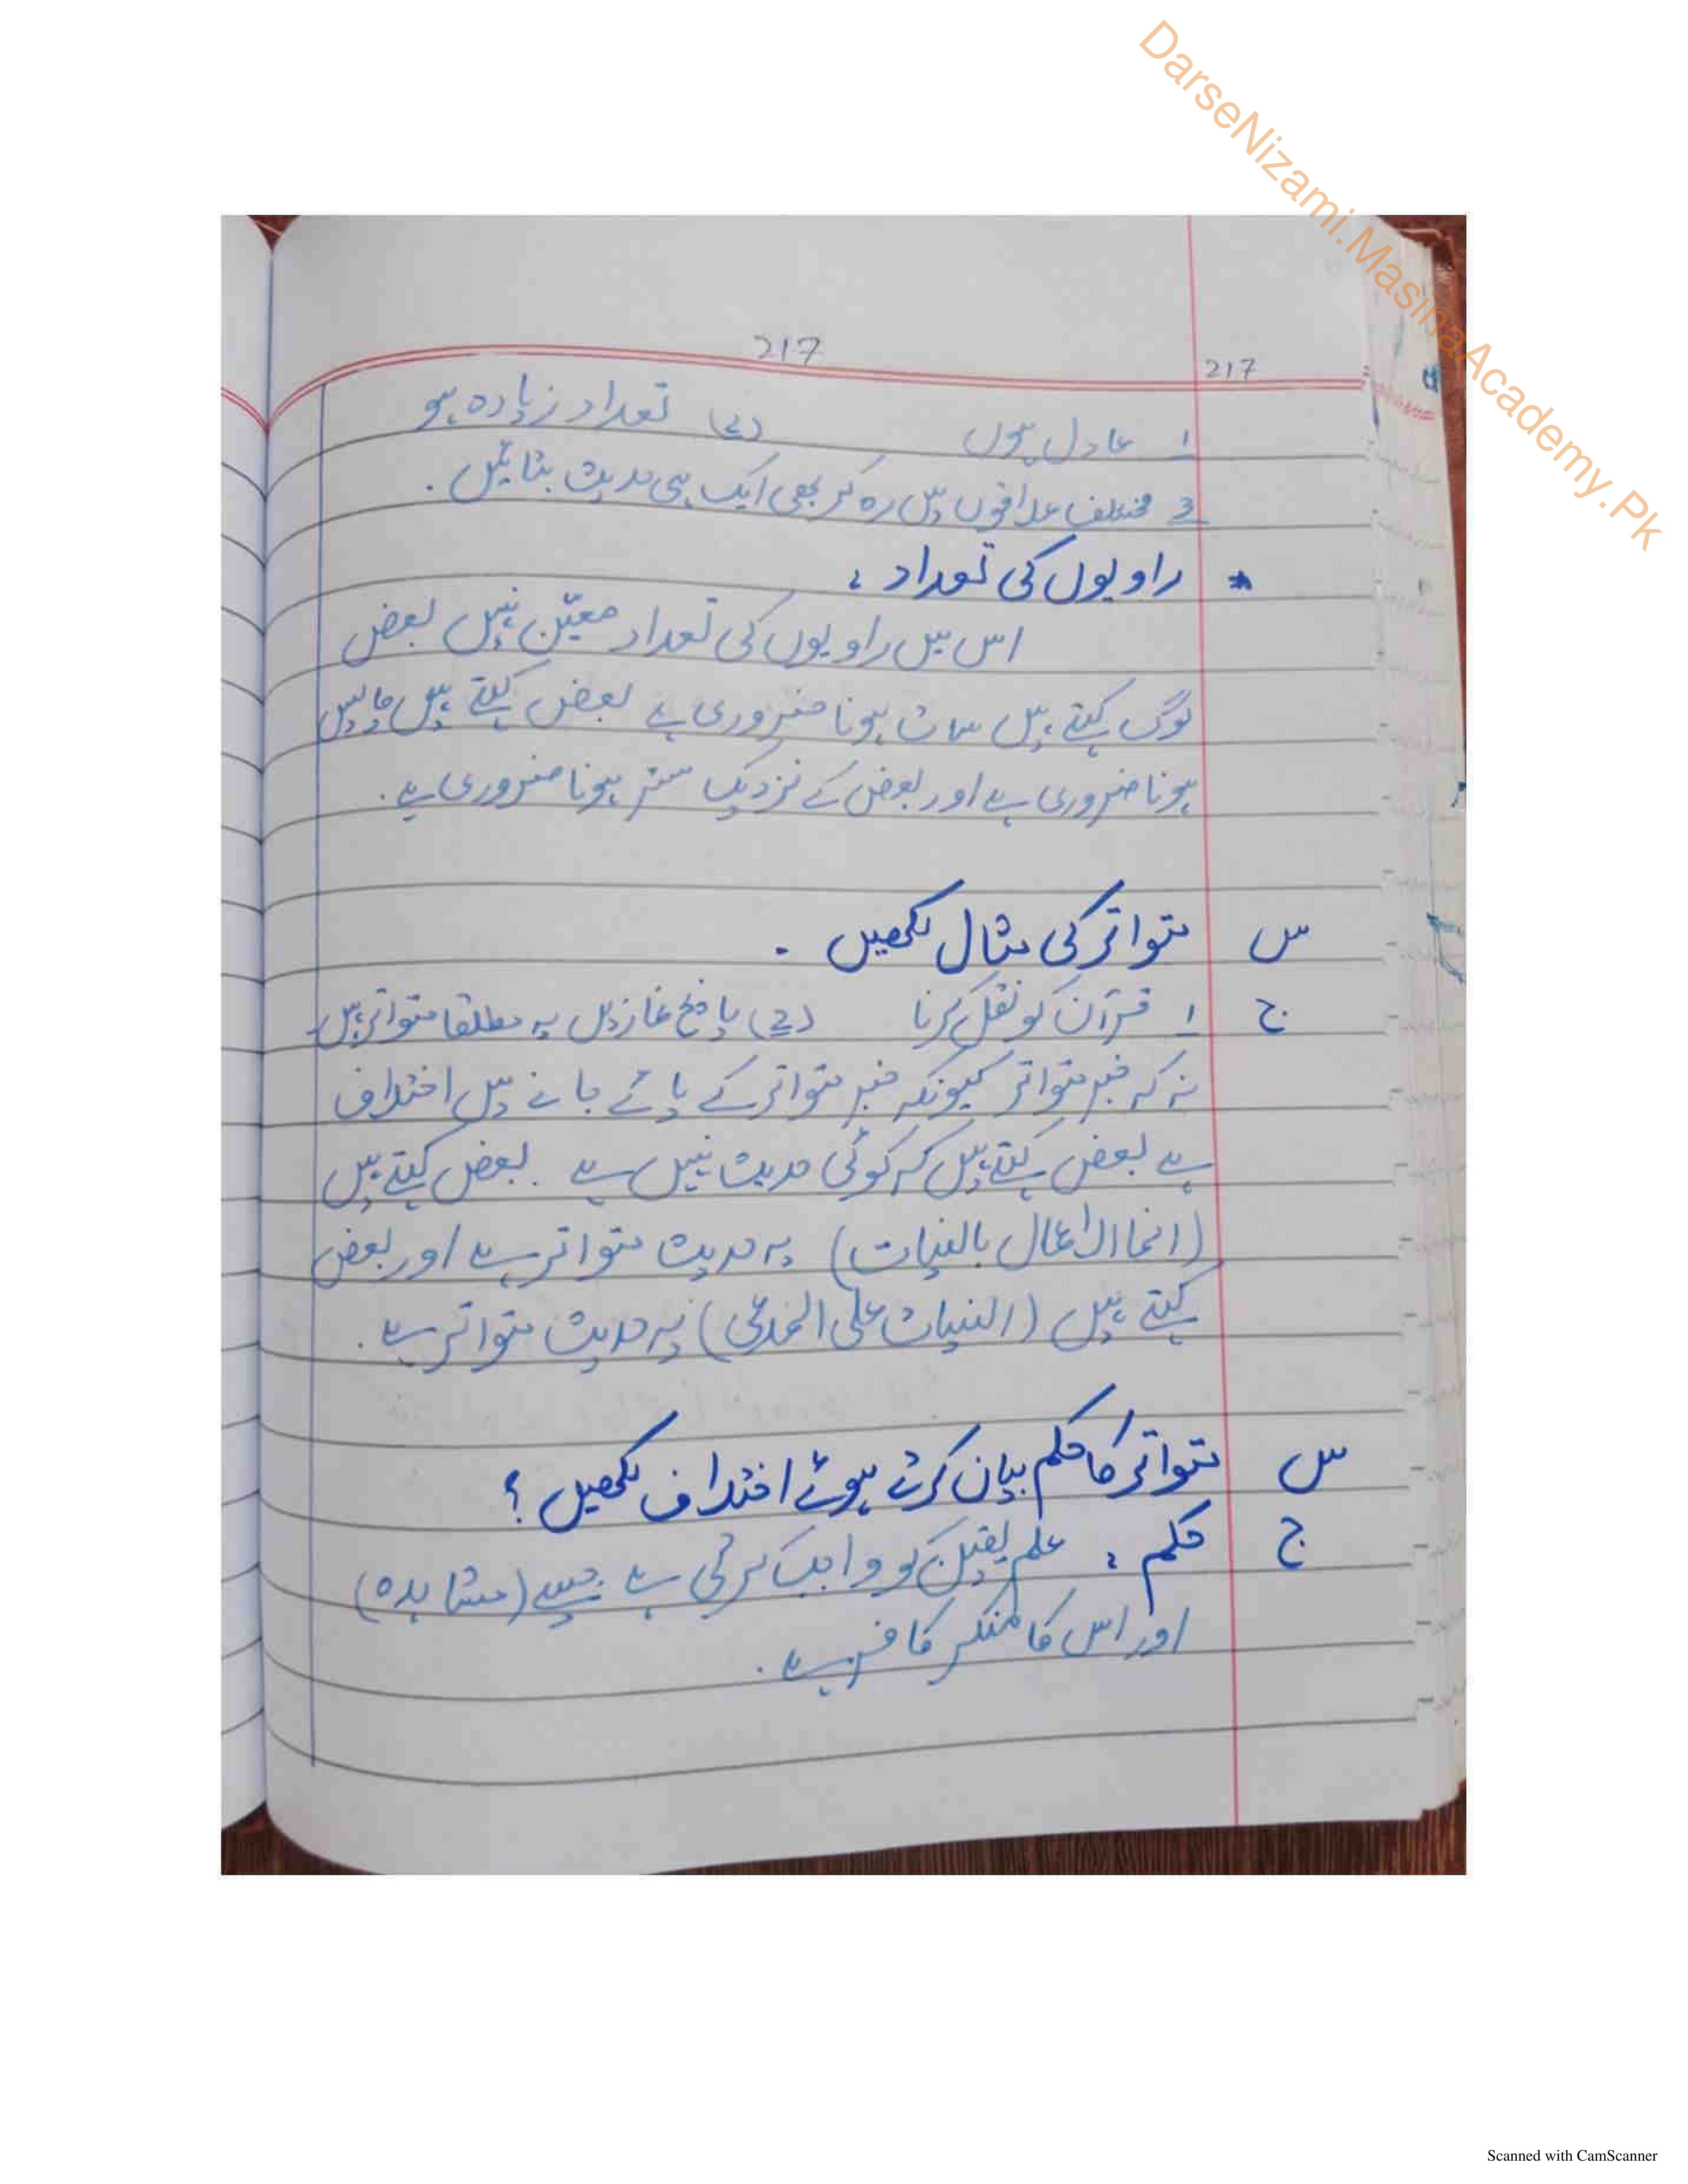 DarseNizami.MasinaAcademy.Pk
217
217
1 عادل ہوں (2) تعداد زیادہ ہو
3 مختلف علاقوں میں رہ کر بھی ایک ہی حدیث بتائیں۔
* راویوں کی تعداد :
اس میں راویوں کی تعداد معیّن نہیں بعض
لوگ کہتے ہیں سات ہونا ضروری ہے بعض کہتے ہیں چالیس
ہونا ضروری ہے اور بعض کے نزدیک ستر ہونا ضروری ہے۔
س متواتر کی مثال لکھیں ۔
ج 1 قرآن کو نقل کرنا (2) پانچ نمازیں یہ مطلقا متواتر ہیں
نہ کہ خبر متواتر کیونکہ خبر متواتر کے پائے جانے میں اختلاف
ہے بعض کہتے ہیں کہ کوئی حدیث نہیں ہے ۔ بعض کہتے ہیں
(انما الاعمال بالنیات) یہ حدیث متواتر ہے اور بعض
کہتے ہیں (البینات علی المدعی) یہ حدیث متواتر ہے ۔
س متواتر کا حکم بیان کرتے ہوئے اختلاف لکھیں ؟
ج حکم : علم یقین کو واجب کرتی ہے جیسے (مشاہدہ)
اور اس کا منکر کافر ہے ۔
Scanned with CamScanner